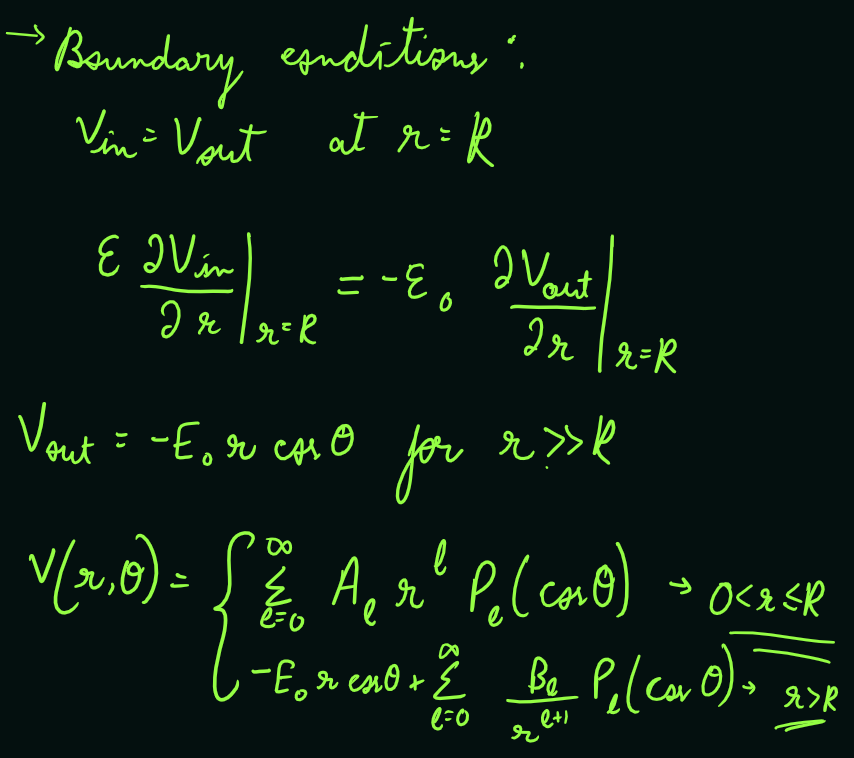 → Boundary conditions :
V_in = V_out at r = R
ε ∂V_in/∂r |_{r=R} = -ε₀ ∂V_out/∂r |_{r=R}
V_out = -E₀ r cos θ for r >> R
V(r,θ) = { ∑_{l=0}^{∞} A_l r^l P_l(cos θ) → 0<r≤R
-E₀ r cosθ + ∑_{l=0}^{∞} B_l/r^{l+1} P_l(cos θ) → r>R